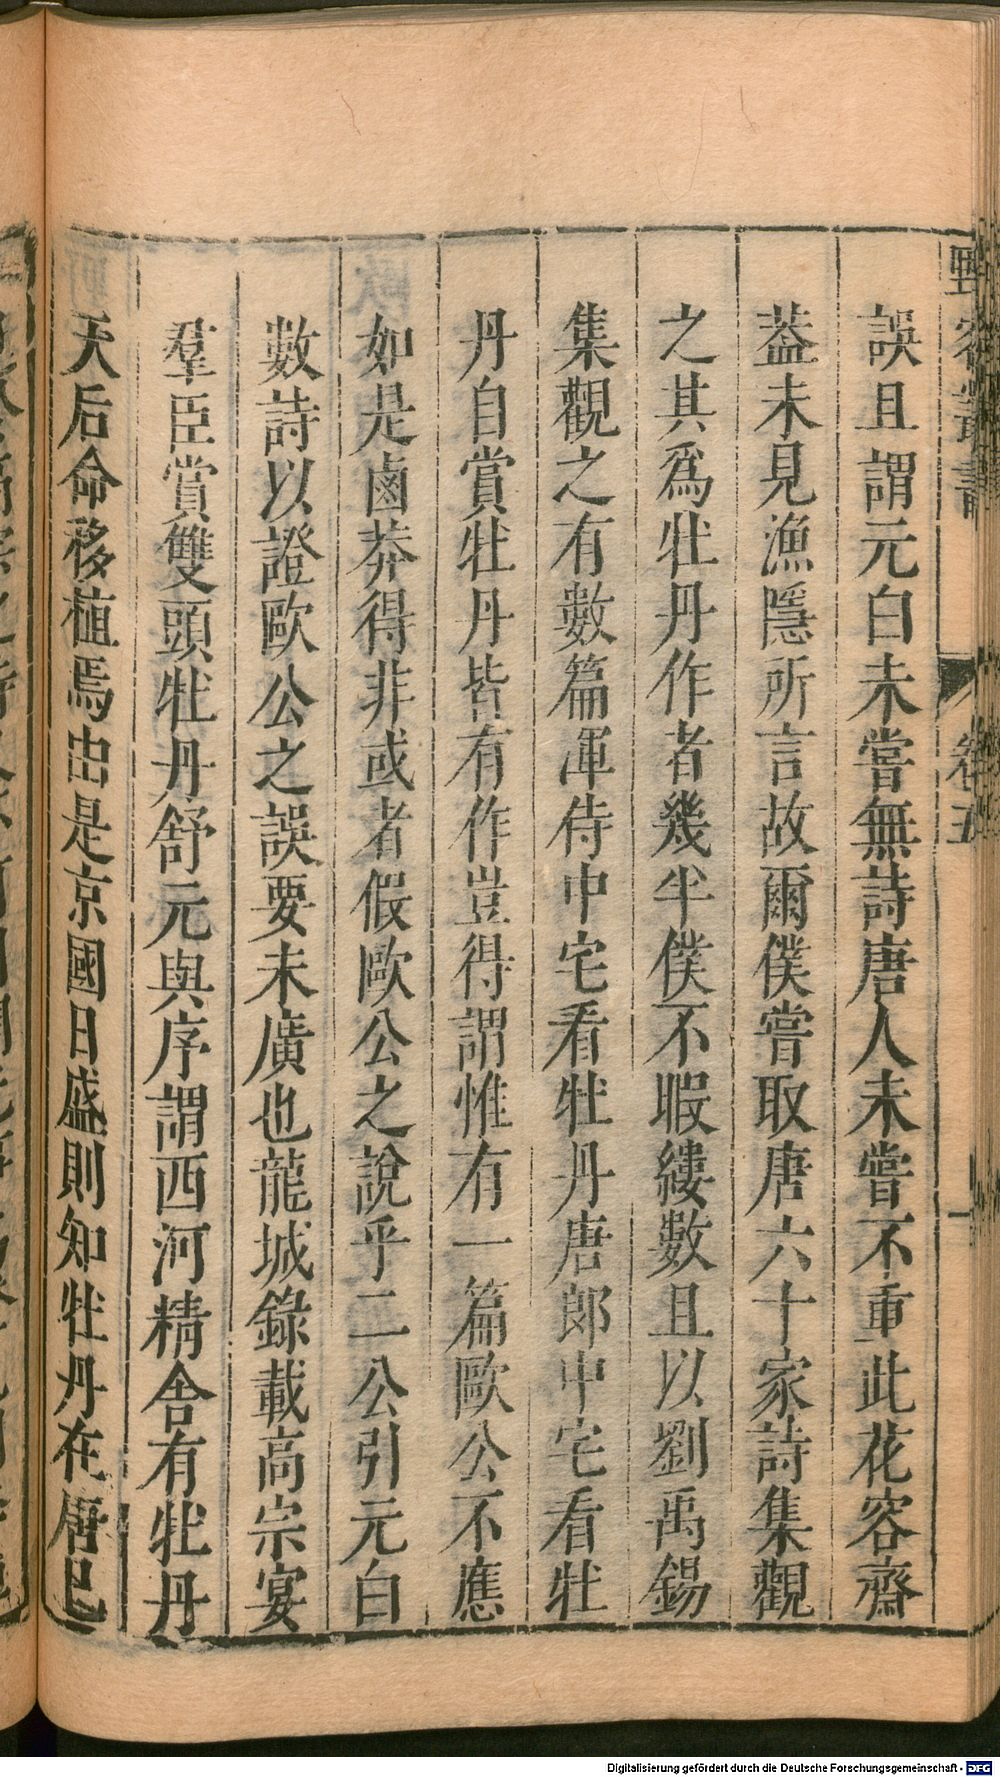 野客叢書 卷五
誤且謂元白未嘗無詩唐人未嘗不重此花容齋
葢未見漁隱所言故爾僕嘗取唐六十家詩集觀
之其爲牡丹作者幾半僕不暇縷數且以劉禹錫
集觀之有數篇渾侍中宅看牡丹唐郎中宅看牡
丹自賞牡丹皆有作豈得謂惟有一篇歐公不應
如是鹵莽得非或者假歐公之說乎二公引元白
數詩以證歐公之誤要未廣也龍城錄載高宗宴
羣臣賞雙頭牡丹舒元與序謂西河精舍有牡丹
天后命移植焉由是京國日盛則知牡丹在唐已
Digitalisierung gefördert durch die Deutsche Forschungsgemeinschaft - DFG